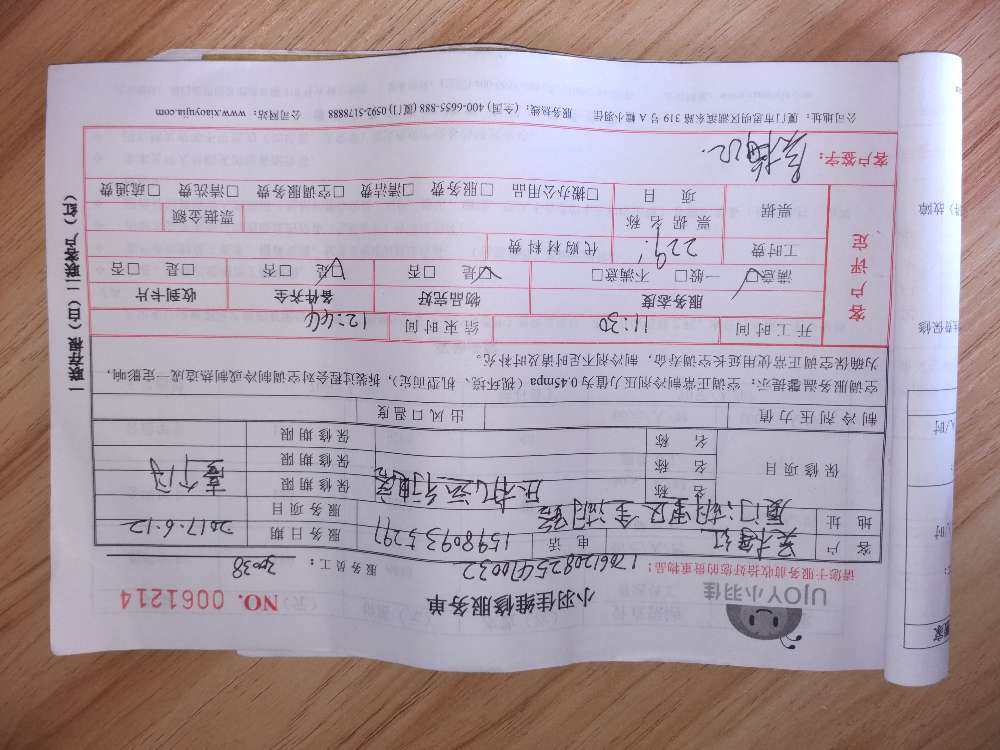 UJOY小羽佳
小羽佳维修服务单
NO. 0061214
请您于服务前收拾好您的贵重物品！
1706120825410032
服务员工：30038
客户 吴梅红 电话 15980935297 服务日期 2017.6.12
地址 厦门湖里区金湖路 服务项目
保修项目 名称 压机运行电容 保修期限 壹个月
名称 保修期限
名称 保修期限
制冷剂压力值 出风口温度
空调服务温馨提示：空调正常制冷剂压力值为0.45mpa（视环境、机型而定），拆装过程会对空调制冷或制热造成一定影响，
为确保空调正常使用延长空调寿命，制冷剂不足时请及时补充。
客户评定
开工时间 11:30 结束时间 12:44
服务态度 物品完好 备件齐全 收到卡片
满意☑ 一般□ 不满意□ ☑是 □否 ☑是 □否 □是 □否
工时费 229. 代购材料费
票据 票据名称 票据金额
项目 □搬办公用品 □服务费 □清洁费 □空调服务费 □清洗费 □疏通费
客户签字：
公司地址：厦门市思明区湖滨东路319号A幢小羽佳 服务热线：(全国) 400-6655-888 (厦门) 0592-5178888 公司网站：www.xiaoyujia.com
一联存根（白）二联客户（红）